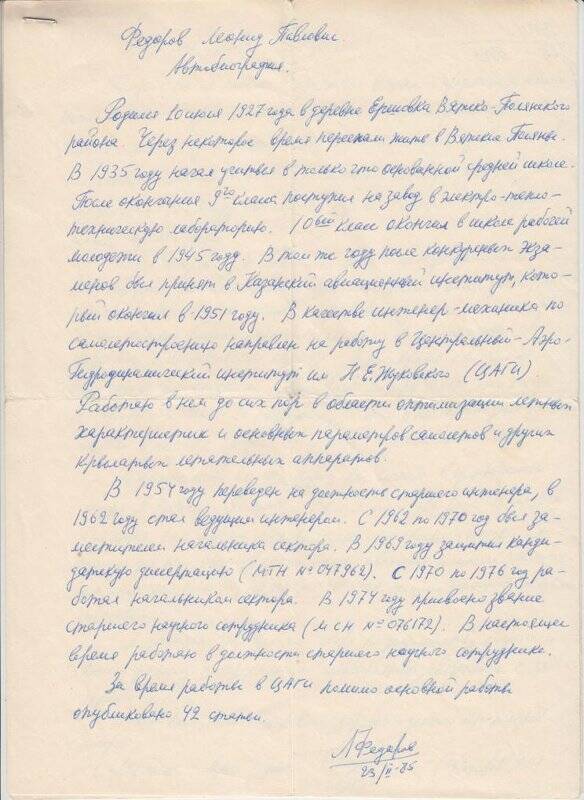 Федоров Леонид Павлович.
Автобиография.
Родился 20 июня 1927 года в деревне Ершовка Вятско-Полянского
района. Через некоторое время переехали жить в Вятские Поляны.
В 1935 году начал учиться в только что основанной средней школе.
После окончания 9го класса поступил на завод в электро-тепло-
техническую лабораторию. 10ый класс окончил в школе рабочей
молодежи в 1945 году. В том же году после конкурсных экза-
менов был принят в Казанский авиационный институт, кото-
рый окончил в 1951 году. В качестве инженер-механика по
самолетостроению направлен на работу в Центральный-Аэро-
Гидродинамический институт им Н.Е.Жуковского (ЦАГИ)
Работаю в нем до сих пор в области оптимизации летных
характеристик и основных параметров самолетов и других
крылатых летательных аппаратов.
В 1954 году переведен на должность старшего инженера, в
1962 году стал ведущим инженером. С 1962 по 1970 год был за-
местителем начальника сектора. В 1969 году защитил канди-
датскую диссертацию (МТН № 047962). С 1970 по 1976 год ра-
ботал начальником сектора. В 1974 году присвоено звание
старшего научного сотрудника (МСН № 076172). В настоящее
время работаю в должности старшего научного сотрудника.
За время работы в ЦАГИ помимо основной работы
опубликовано 42 статьи.
ЛФедоров
23/II-85